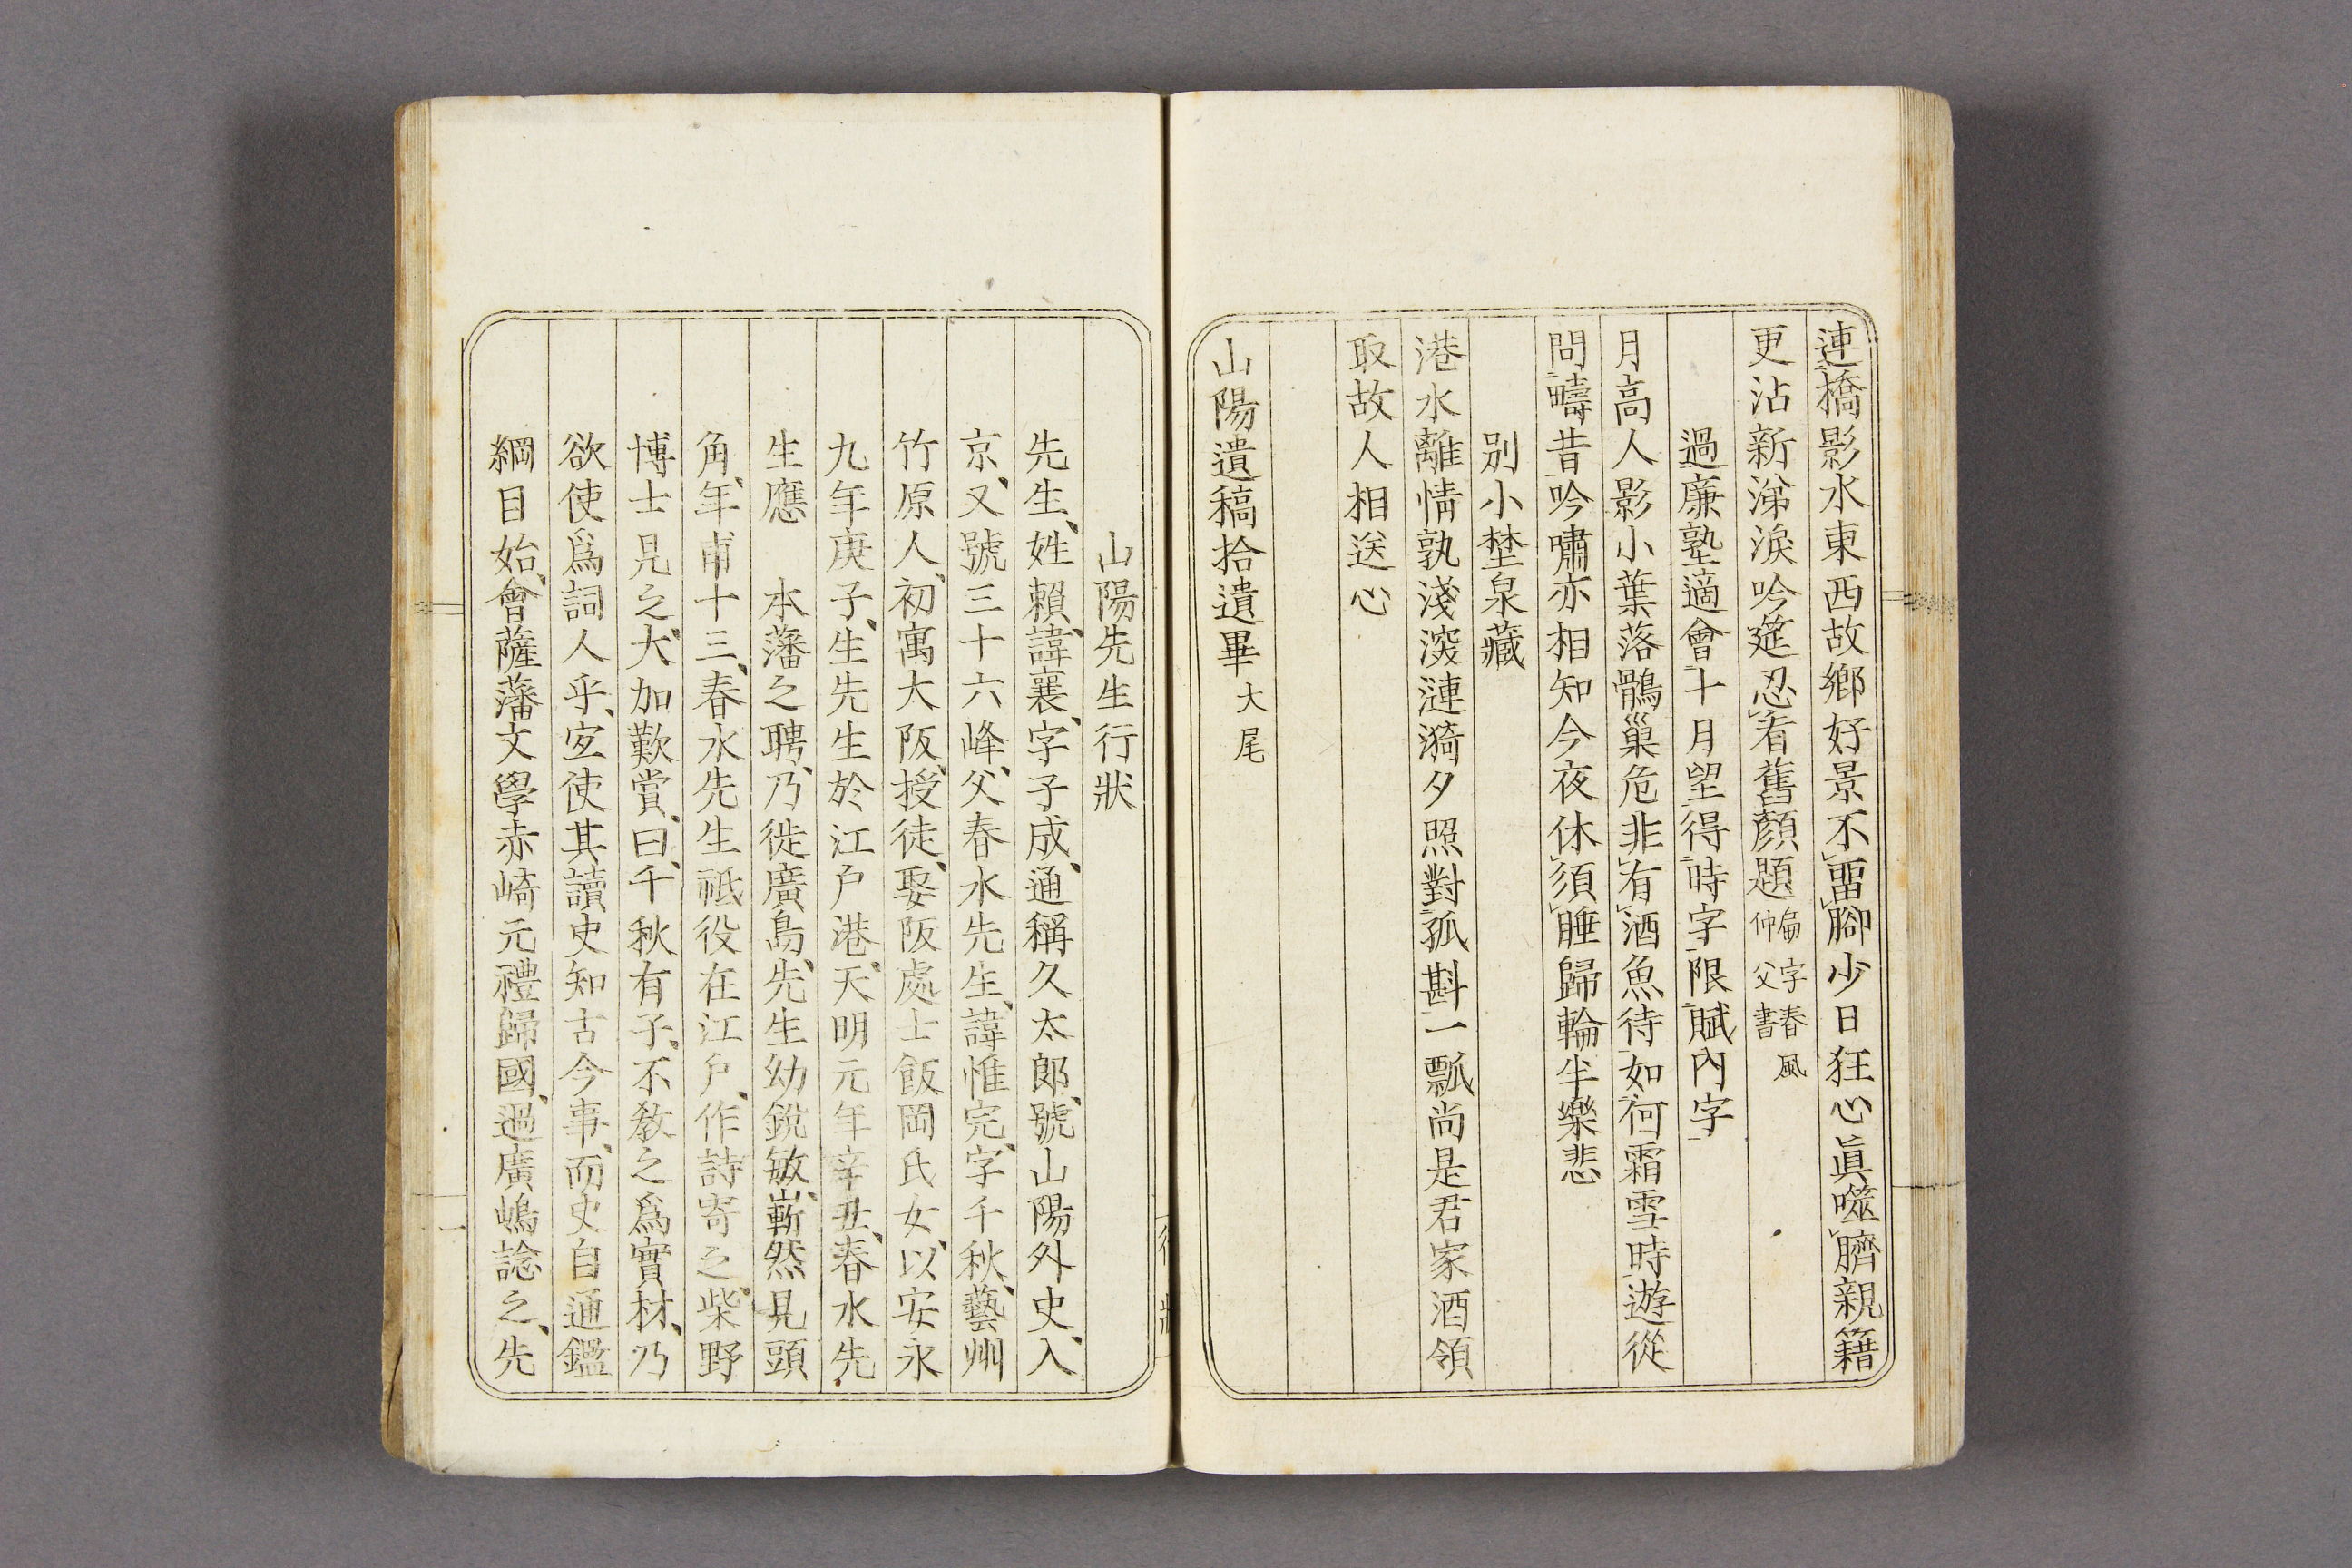 連橋影水東西故鄉好景不畱腳少日狂心眞噬臍親籍
更沾新涕淚吟筵忍看舊顏題扁字春風仲父書
過廉塾適會十月望得時字限賦內字
月高人影小葉落鶻巢危非有酒魚待如何霜雪時遊從
問疇昔吟嘯亦相知今夜休須睡歸輪半樂悲
別小埜泉藏
港水離情孰淺深漣漪夕照對孤斟一瓢尚是君家酒領
取故人相送心
山陽遺稿拾遺畢大尾
行狀
山陽先生行狀
先生、姓賴、諱襄、字子成、通稱久太郎、號山陽外史、入
京、又號三十六峰、父春水先生、諱惟完、字千秋、藝州
竹原人、初寓大阪、授徒、娶阪處士飯岡氏女、以安永
九年庚子、生先生於江戶港、天明元年辛丑、春水先
生應　本藩之聘、乃徙廣島、先生幼銳敏、嶄然見頭
角、年甫十三、春水先生祗役在江戶、作詩寄之、柴野
博士見之、大加歎賞、曰、千秋有子、不教之爲實材、乃
欲使爲詞人乎、宜使其讀史知古今事、而史自通鑑
綱目始、會薩藩文學赤崎元禮歸國、過廣嶋諗之、先
一